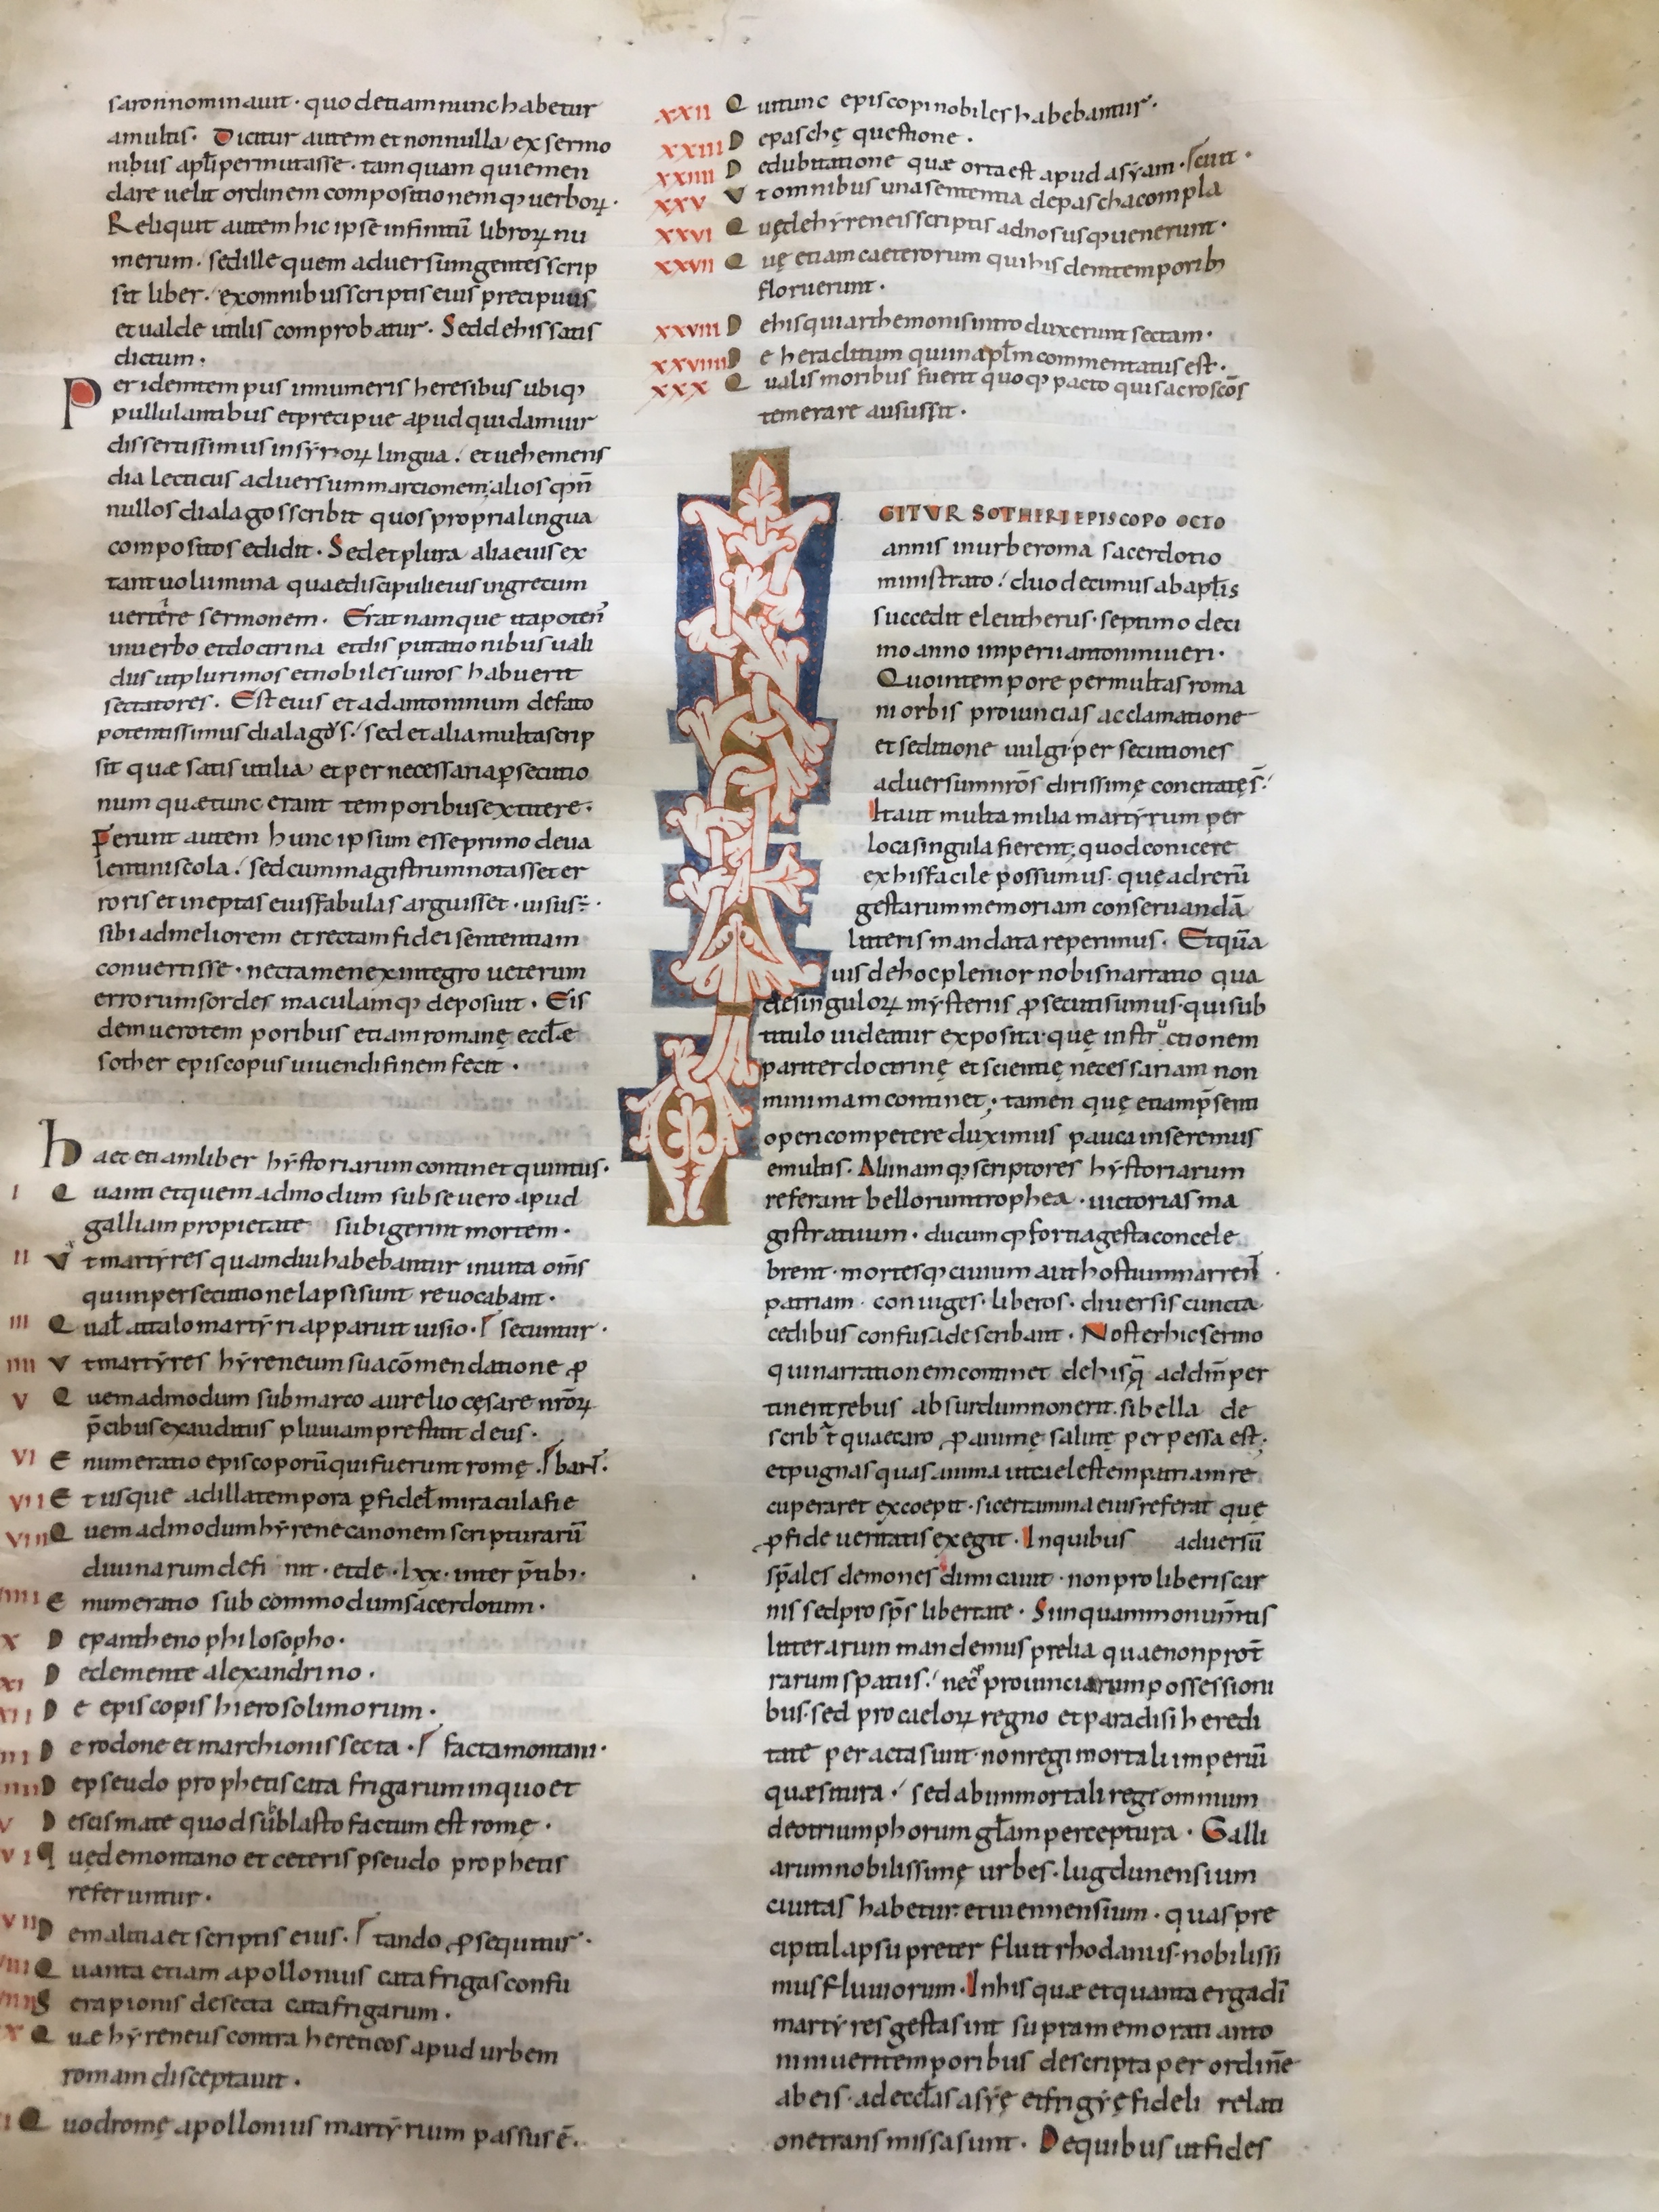 saronnominauit · quod etiam nunc habetur
amultis · Dicitur autem et nonnulla ex sermo
nibus apłi permutasse · tam quam qui emen
dare uelit ordinem compositionemq; uerboꝝ ·
Reliquit autem hic ipse infinitū libroꝝ nu
merum · sed ille quem aduersum gentes scrip
sit liber · ex omnibus scriptis eius precipuus
et ualde utilis comprobatur · Sed de his satis
dictum ·
Per idem tempus innumeris heresibus ubiq;
pullulantibus et precipue apud quidam uir
dissertissimus in sẏroꝝ lingua · et uehemens
dialecticus aduersum marcionem alios qꝫ n̄
nullos dialagos scribit quos propria lingua
compositos edidit · Sed et plura alia eius ex
tant uolumina quae discipuli eius in grecum
uertere sermonem · Erat namque ita poten̄
in uerbo et doctrina et disputationibus uali
dus ut plurimos et nobiles uiros habuerit
sectatores · Est eius et ad antoninum de fato
potentissimus dialagos · sed et alia multa scrip
sit quæ satis utilia et per necessaria ꝑsecutio
num quæ tunc erant temporibus extitere ·
Ferunt autem hunc ipsum esse primo de ua
lentini scola · sed cum magistrum notasset er
roris et ineptas eius fabulas arguisset · uisus ÷ ·
sibi ad meliorem et rectam fidei sententiam
conuertisse · nec tamen ex integro ueterum
errorum sordes maculamq; deposuit · Eis
dem uero temporibus etiam romanę eccłæ
sother episcopus uiuendi finem fecit ·
Haec etiam liber hẏstoriarum continet quintus ·
I Quanti et quemadmodum sub seuero apud
galliam pro pietate subigerint mortem ·
II Vt martẏres quamdiu habebantur in uita om̄s
qui in persecutione lapsi sunt reuocabant ·
III Qual̄ attalo martẏri apparuit uisio · secuntur ·
IIII Vt martẏres hẏreneum sua cōmendatione ꝓ
V Quemadmodum sub marco aurelio cęsare nr̄oꝝ
p̄cibus exauditus pluuiam prestitit deus ·
VI Enumeratio episcoporū qui fuerunt romę · bant̄ ·
VII Et usque ad illa tempora ꝑ fideł miracula fie
VIII Quemadmodum hẏrene canonem scripturarū
diuinarum defi nit · et de · lxx · inter p̄tib; ·
VIIII Enumeratio sub commodum sacerdotum ·
X De pantheno philosopho ·
XI De clemente alexandrino ·
XII De episcopis hierosolimorum ·
XIII De rodone et marchionis secta · facta montani ·
XIIII De pseudo prophetis cata frigarum in quo et
XV De scismate quod sub blasto factum est romę ·
XVI Quę de montano et ceteris pseudo prophetis
referuntur ·
XVII De maltia et scriptis eius · tando ꝓsequitur ·
XVIII Quanta etiam apollonius catafrigas confu
XVIIII Serapionis de secta catafrigarum ·
XX Quæ hẏreneus contra hereticos apud urbem
romam disceptauit ·
XXI Quod romę apollonius martẏrium passus ē ·
XXII Qui tunc episcopi nobiles habebantur ·
XXIII De paschę questione ·
XXIIII De dubitatione quæ orta est apud asẏam · scuit ·
XXV Vt omnibus una sententia de pascha compla
XXVI Quę de hẏreneis scriptis ad nos usq; uenerunt ·
XXVII Quę etiam caeterorum qui hisdem temporib;
floruerunt ·
XXVIII De his qui arthemonis introduxerunt sectam ·
XXVIIII De heraclitum qui in apłm commentatus est ·
XXX Qualis moribus fuerit quoq; pacto qui sacros cōs
temerare ausus sit ·
IGITVR SOTHERI EPISCOPO OCTO
annis in urbe roma sacerdotio
ministrato · duodecimus ab apłis
succedit eleutherus · septimo deci
mo anno imperii antonini ueri ·
Quo in tempore permultas roma
ni orbis prouincias acclamatione
et seditione uulgi persecutiones
aduersum nr̄os dirissimę concitatę s̄ ·
Ita ut multa milia martẏrum per
loca singula fierent · quod conicere
ex his facile possumus · quę ad rerū
gestarum memoriam conseruandā
litteris mandata reperimus · Et quā
uis de hoc plenior nobis narratio qua
de singuloꝝ mẏsteriis ꝓsecuti sumus · qui sub
titulo uideatur exposita · quę instructionem
pariter doctrinę et scientię necessariam non
minimam continet · tamen quę etiam p̄senti
operi competere duximus pauca inseremus
e multis · Alii namq; scriptores hẏstoriarum
referant bellorum trophea · uictorias ma
gistratuum · ducumq; fortia gesta concele
brent · mortesq; ciuium aut hostium narrent
patriam · coniuges · liberos · diuersis cuncta
cedibus confusa describant · Noster hic sermo
qui narrationem continet de his q̄ ad dn̄m per
tinent rebus absurdum non erit · si bella de
scribat quae caro ꝓ animę salute perpessa est ·
et pugnas quas anima ut caelestem patriam re
cuperaret excoepit · si certamina eius referat quę
ꝓ fide ueritatis exegit · In quibus aduersū
sp̄ales demones dimicauit · non pro liberis car
nis sed pro sp̄s libertate · Sin quam monum̄tis
litterarum mandemus prelia quae non pro t̄
rarum spatiis · nec ꝓ prouinciarum possessioni
bus · sed pro caeloꝝ regno et paradisi heredi
tate peracta sunt · non regi mortali imperiū
quæsitura · sed ab immortali rege omnium
deo triumphorum głam perceptura · Galli
arum nobilissimę urbes · lugdunensium
ciuitas habetur · et uiennensium · quas pre
cipiti lapsu preter fluit rhodanus · nobilissi
mus fluuiorum · In his quæ et quanta erga dī
martẏres gesta sint supra memorati anto
nini ueri temporibus descripta per ordinē
ab eis · ad eccłas asẏę et frigẏę fideli relati
one transmissa sunt · De quibus ut fides